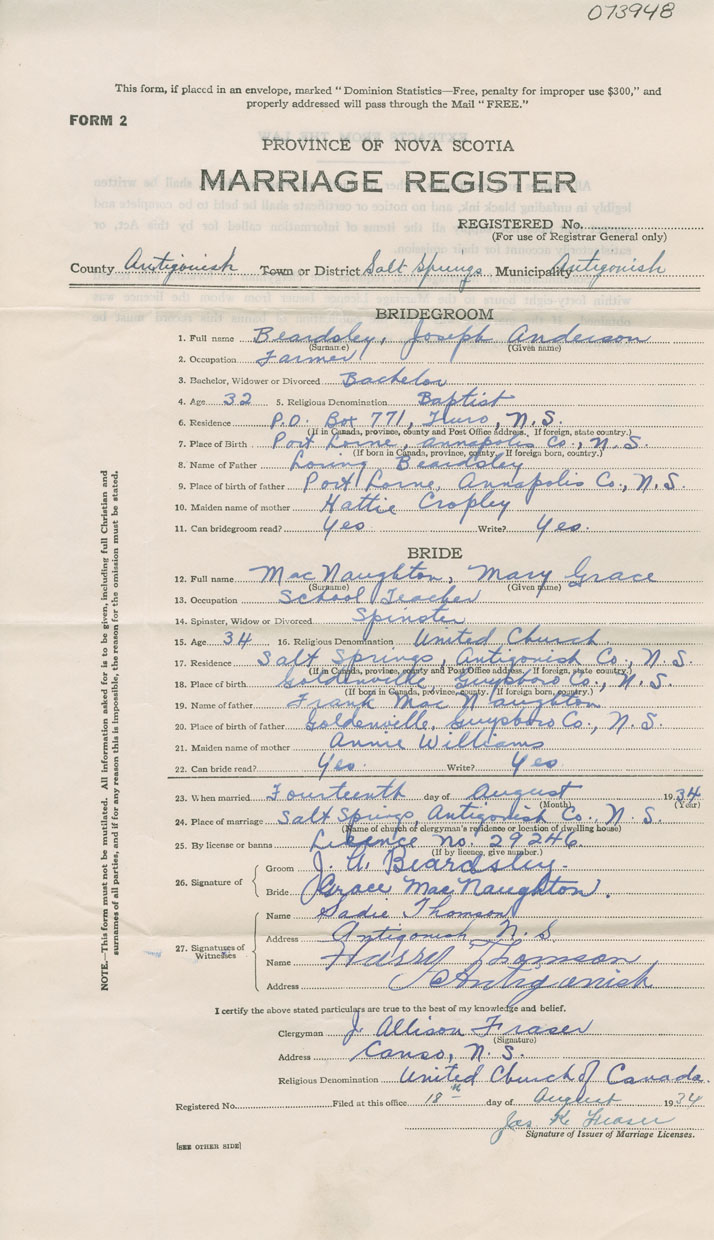 073948
This form, if placed in an envelope, marked "Dominion Statistics—Free, penalty for improper use $300," and
properly addressed will pass through the Mail "FREE."
FORM 2
PROVINCE OF NOVA SCOTIA
MARRIAGE REGISTER
REGISTERED No.
(For use of Registrar General only)
County Antigonish Town or District Salt Springs Municipality Antigonish
BRIDEGROOM
1. Full name Beardsley, Joseph Anderson
(Surname) (Given name)
2. Occupation Farmer
3. Bachelor, Widower or Divorced Bachelor
4. Age 32 5. Religious Denomination Baptist
6. Residence P.O. Box 771, Truro, N.S.
(If in Canada, province, county and Post Office address. If foreign, state country.)
7. Place of Birth Port Lorne, Annapolis Co., N.S.
(If born in Canada, province, county. If foreign born, country.)
8. Name of Father Loring Beardsley
9. Place of birth of father Port Lorne, Annapolis Co., N.S.
10. Maiden name of mother Hattie Cropley
11. Can bridegroom read? Yes Write? Yes.
BRIDE
12. Full name MacNaughton, Mary Grace
(Surname) (Given name)
13. Occupation School Teacher
14. Spinster, Widow or Divorced Spinster
15. Age 34 16. Religious Denomination United Church
17. Residence Salt Springs, Antigonish Co., N.S.
(If in Canada, province, county and Post Office address. If foreign, state country.)
18. Place of birth Goldenville, Guysboro Co., N.S.
(If born in Canada, province, county. If foreign born, country.)
19. Name of father Frank MacNaughton
20. Place of birth of father Goldenville, Guysboro Co., N.S.
21. Maiden name of mother Annie Williams
22. Can bride read? Yes. Write? Yes
23. When married Fourteenth day of August 1934
(Month) (Year)
24. Place of marriage Salt Springs, Antigonish Co., N.S.
(Name of church of clergyman's residence or location of dwelling house)
25. By license or banns Licence no. 29246.
(If by licence, give number.)
26. Signature of
Groom J. A. Beardsley.
Bride Grace MacNaughton.
27. Signatures of Witnesses
Name Sadie Thomson
Address Antigonish N.S.
Name Harry Thomson
Address Antigonish
I certify the above stated particulars are true to the best of my knowledge and belief.
Clergyman J. Allison Fraser
(Signature)
Address Canso, N.S.
Religious Denomination United Church of Canada.
Registered No. Filed at this office 18th day of August 1934
Jas K. Fraser
Signature of Issuer of Marriage Licenses.
[SEE OTHER SIDE]
NOTE.—This form must not be mutilated. All information asked for is to be given, including full Christian and
surnames of all parties, and if for any reason this is impossible, the reason for the omission must be stated.